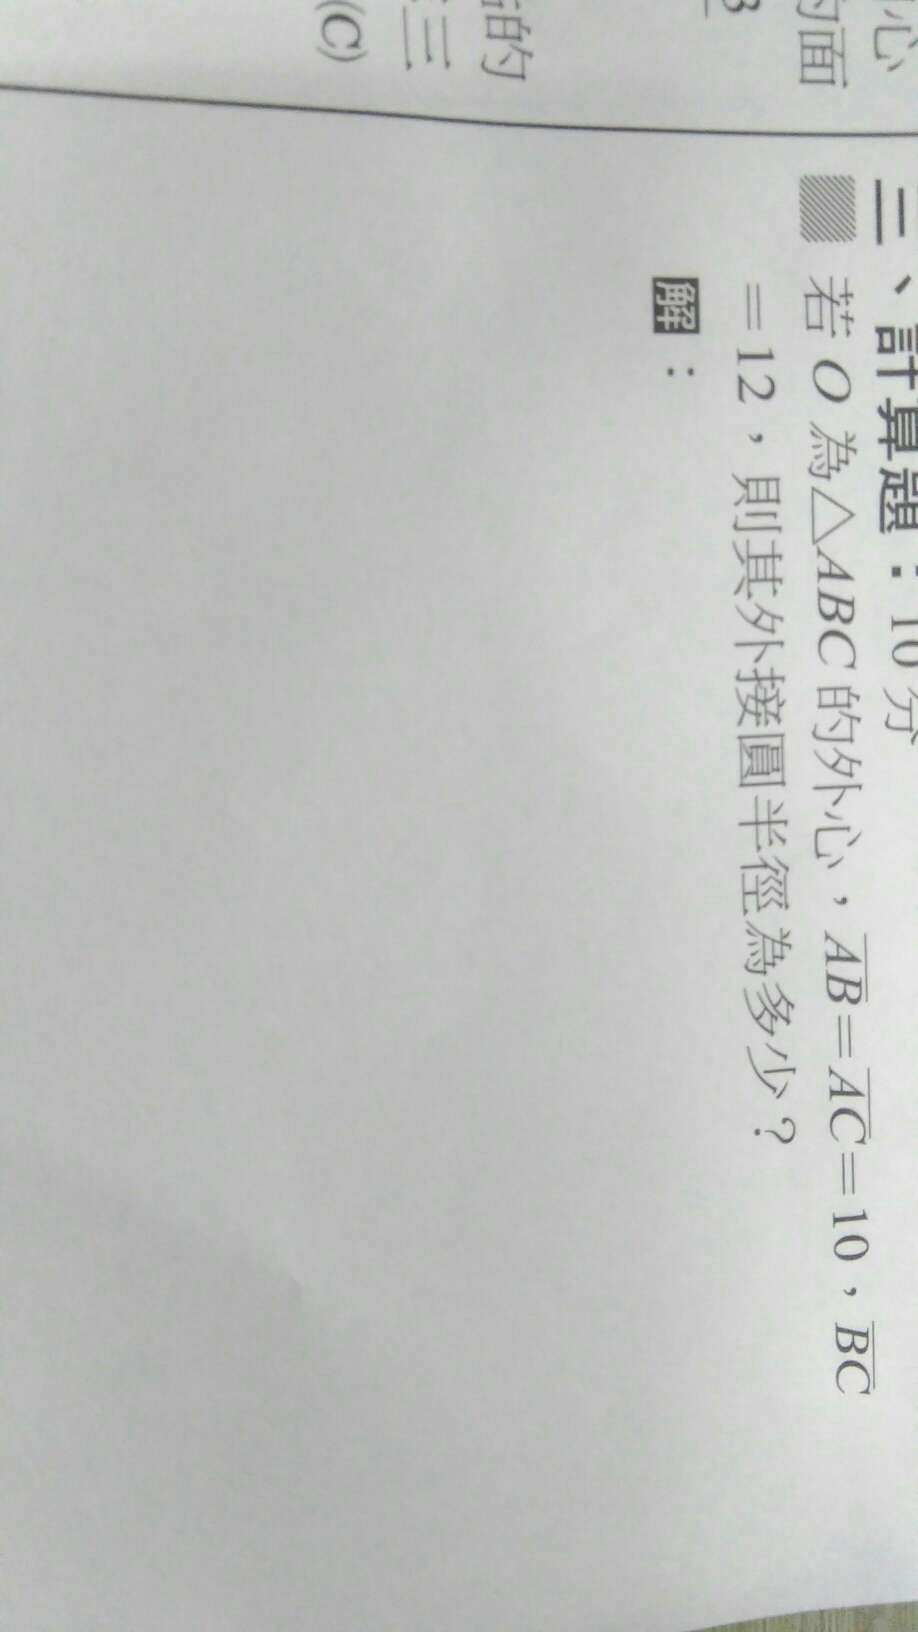 心
的面
的
三
(C)
三、計算題：10分
若O為△ABC的外心，AB=AC=10，BC
=12，則其外接圓半徑為多少？
解：